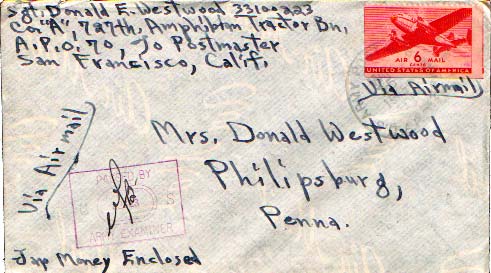 Sgt. Donald E. Westwood 33100223
Co. "A", 727th, Amphibian Tractor Bn,
A.P.O. 70, % Postmaster
San Francisco, Calif.
AIR 6 MAIL
CENTS
UNITED STATES OF AMERICA
Via Airmail
Via Airmail
Mrs. Donald Westwood
Philipsburg,
Penna.
PASSED BY
S
ARMY EXAMINER
Jap Money Enclosed